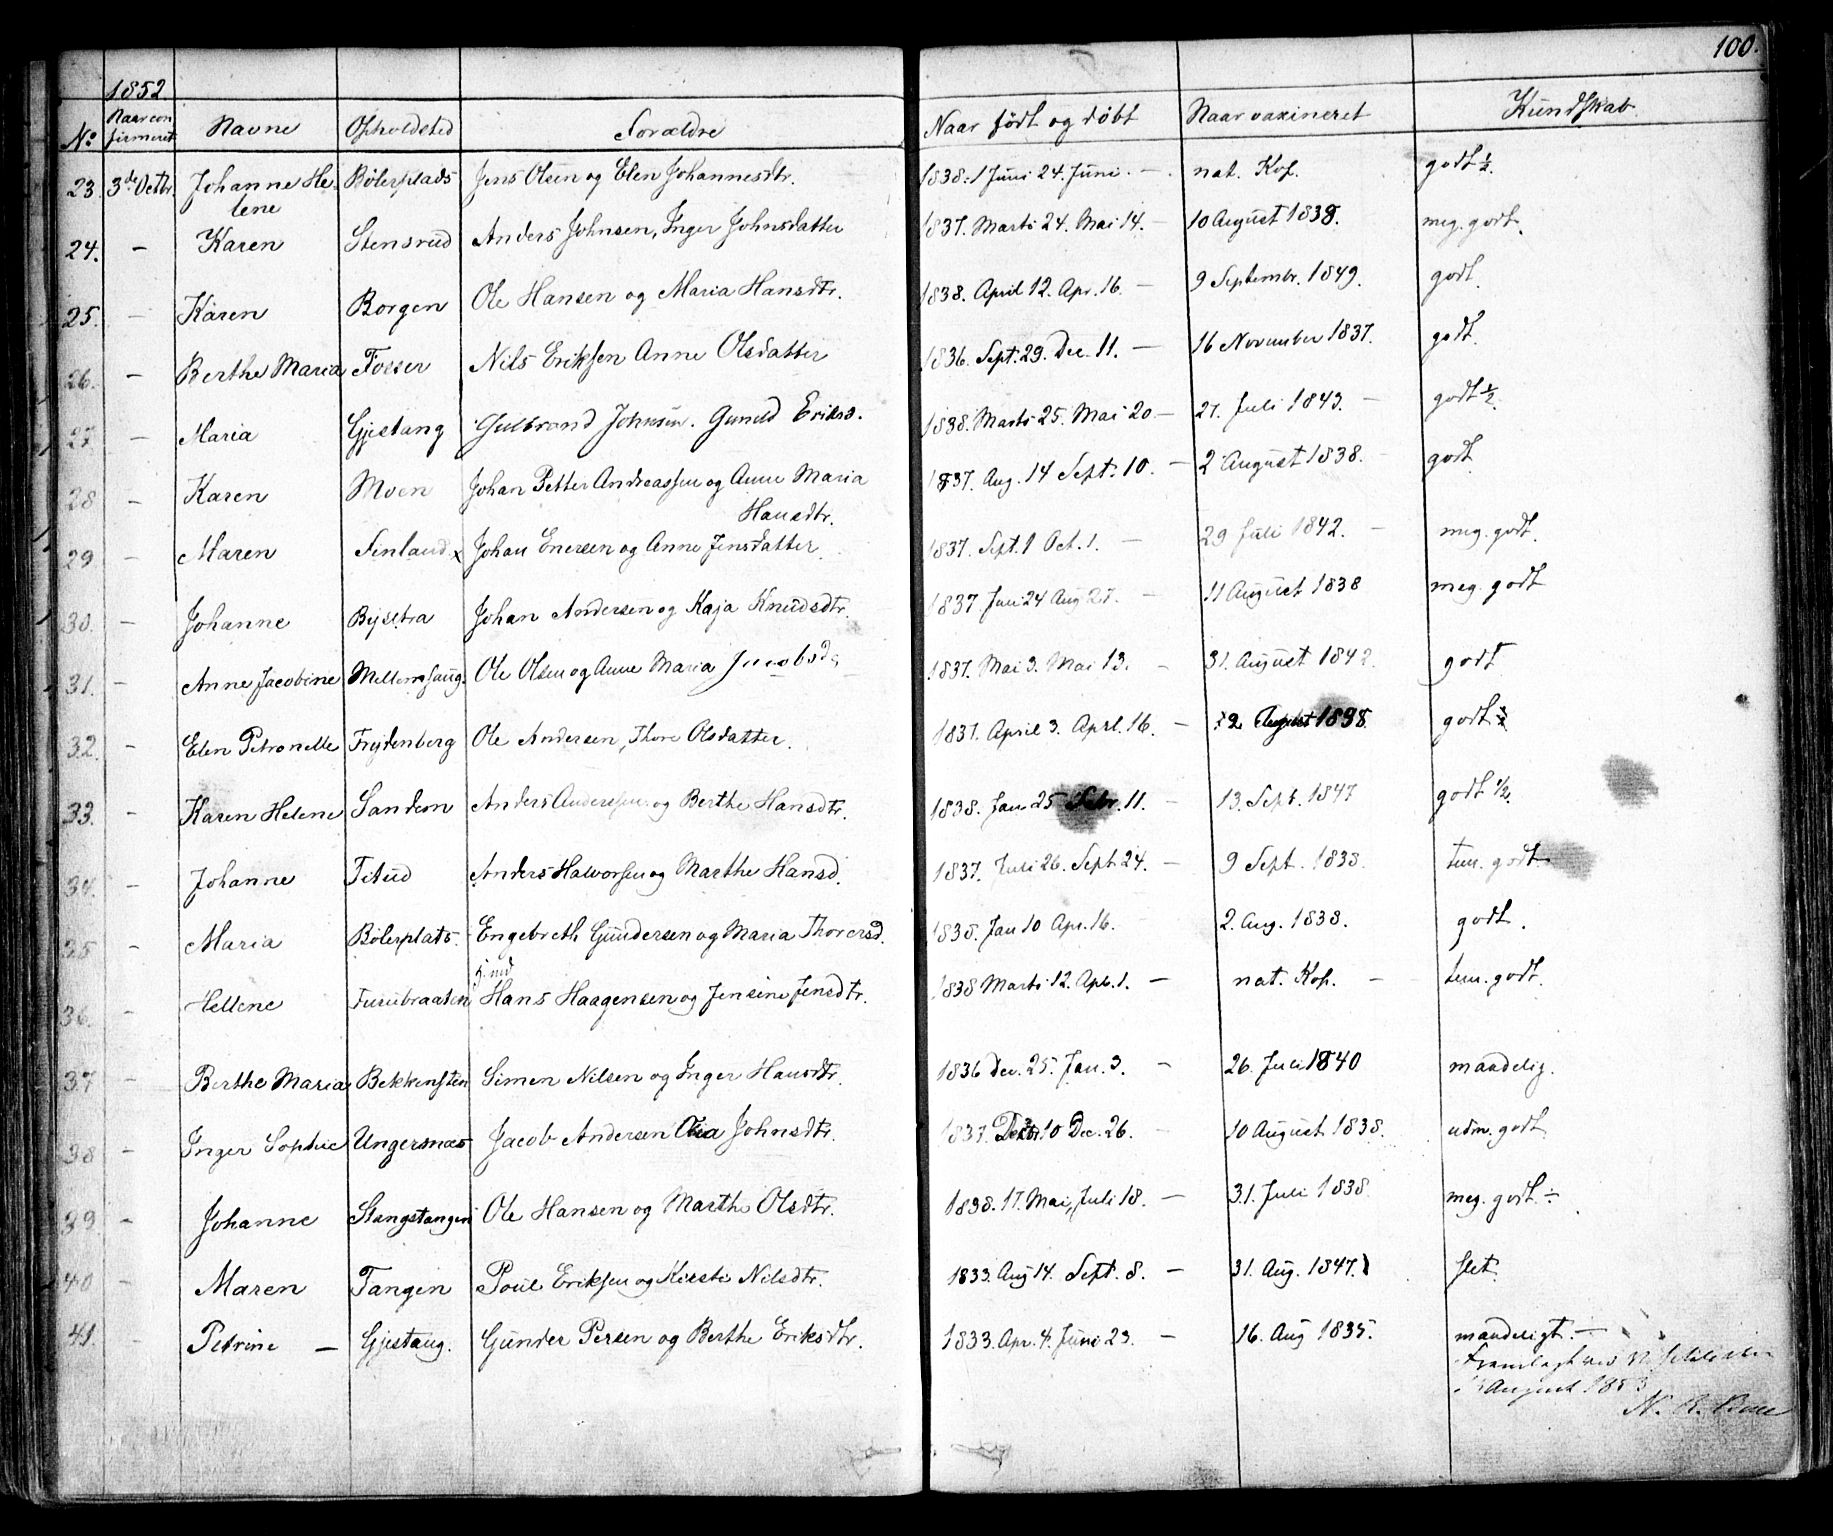 100.
1852
No Naar confirmeret Navne Opholdsted Forældre Naar født og døbt Naar vaxineret Kundskab
23. 3de Octbr. Johanne He- Bölerplads Jens Olsen og Elen Johannesdtr. 1838. 1 Juni 24. Juni. — nat. Kop. godt ½.
lene
24. — Karen Stensrud Anders Johnsen, Inger Johnsdatter 1837. Marts 24. Mai 14. — 10 August 1838. meg. godt.
25. — Karen Borgen Ole Hansen og Maria Hansdtr. 1838. April 12. Apr. 16. — 9 Septembr. 1849. godt.
26. — Berthe Maria Fosser Nils Eriksen Anne Olsdatter 1836. Sept. 29. Dec. 11. — 16 November 1837. godt.
27. — Maria Gjestang Gulbrand Johnsen. Gunild Eriksd. 1838. Marts 25. Mai 20 — 27. Juli 1843. — godt ½.
28 — Karen Moen Johan Petter Andreassen og Anne Maria 1837. Aug. 14 Sept. 10. — 2 August 1838. — godt
Hansdtr.
29 — Maren Finland x Johan Enersen og Anne Jensdatter 1837. Sept. 1 Oct. 1. — 29 Juli 1842. — meg. godt.
30. — Johanne Bysetra Johan Andersen og Kaja Knudsdtr. 1837. Juni 24 Aug 27. — 11 August 1838 meg. godt
31. — Anne Jacobine Mellemsaug. Ole Olsen og Anne Maria Jacobsd. 1837. Mai 3. Mai 13. — 31. August 1842. godt
32. — Elen Petronelle Frydenberg Ole Andersen, Thore Olsdatter. 1837. April 3. Aprl. 16. — 2 August 1838 godt ½
33. — Karen Helene Sandem Anders Andersen og Berthe Hansdtr. 1838. Jan 25 Febr. 11. — 13. Sept. 1847 godt ½.
34. — Johanne Titud Anders Halvorsen og Marthe Hansd. 1837. Juli 26. Sept 24. — 9 Sept. 1838. tem. godt
35 — Maria Bölerplats. Engebreth Gundersen og Maria Thorersd. 1838. Jan 10 Apr. 16. 2. Aug. 1838. godt.
36. — Hellene Furubraaten Hans Haagensen og Jensine Jensdtr. 1838 Marts 12. Apr. 1. — nat. Kop. — tem. godt.
37 — Berthe Maria Bekkensten Simen Nilsen og Inger Hansdtr. 1836 Dec. 25. Jan. 3. — 26. Juli 1840 maadelig.
38 — Inger Sophie Ungersnæs Jacob Andersen Olia Johnsdtr. 1837. 10 Dec. 26. — 10 August 1838. udm. godt
39. — Johanne Stangstangen Ole Hansen og Marthe Olsdtr. 1838. 17. Mai, Juli 18. — 31. Juli 1838 meg. godt ÷.
40 — Maren Tangen Poul Eriksen og Kirsti Nilsdtr. 1833. Aug 14. Sept. 8. — 31. Aug. 1847. slet.
41. — Petrine — Gjestang. Gunder Persen og Berthe Eriksdtr. 1833. Apr. 4. Juni 23. — 16. Aug 1835. maadeligt. —
Fremlagt ved Visitatsen
August 1853
N. R. Bull